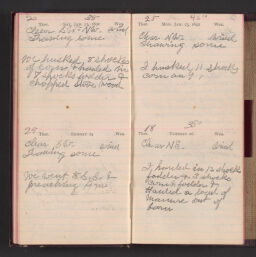 20 25
Sat. Jan. 23, 1892
Clear SW-NW. Wind
Thawing some.
We husked 8 shocks
of corn & hauled in
17 shocks fodder &
chopped stove wood
29
Ther. Sunday 24 Wea.
Clear SW. Wind
Thawing some
We went to S.S. &
preaching A.M.
25 45°
Ther. Mon. Jan. 25, 1892 Wea.
Clear NW. Wind
Thawing some
I husked 11 shocks
corn
18 35°
Ther. Tuesday 26 Wea.
Clear NE. Wind
I hauled in 12 shocks
fodder & 8 shocks
fodder &
Hauled a load of
manure out of
barn